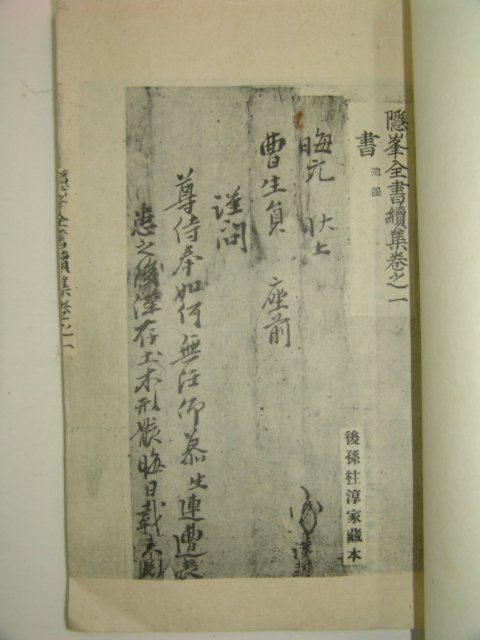 隱峯全書續集卷之一
書
遺墨
後孫桂淳家藏本
晦元 狀上
曺生員 座前
謹問
尊侍奉如何無任仰慕生連遭喪
之 僅存土木形骸晦日載
全書續集卷之一